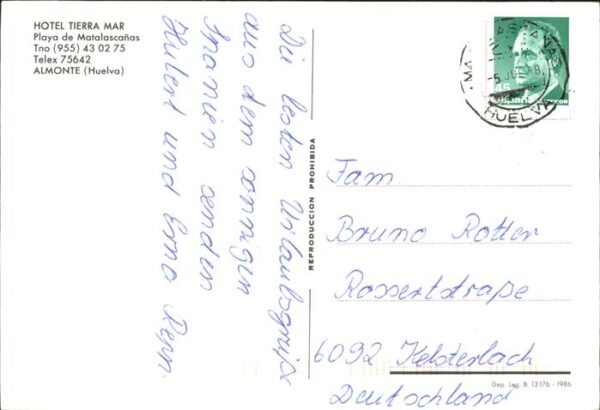 HOTEL TIERRA MAR
Playa de Matalascañas
Tno (955) 43 02 75
Telex 75642
ALMONTE (Huelva)
Die besten Urlaubsgrüße
aus dem sonnigen
Spanien senden
Hubert und Erna Depp.
REPRODUCCION PROHIBIDA
HUELVA
Fam.
Bruno Rotter
Rossertstraße
6092 Kelsterbach
Deutschland
Dep. Leg. B 13.176 - 1986